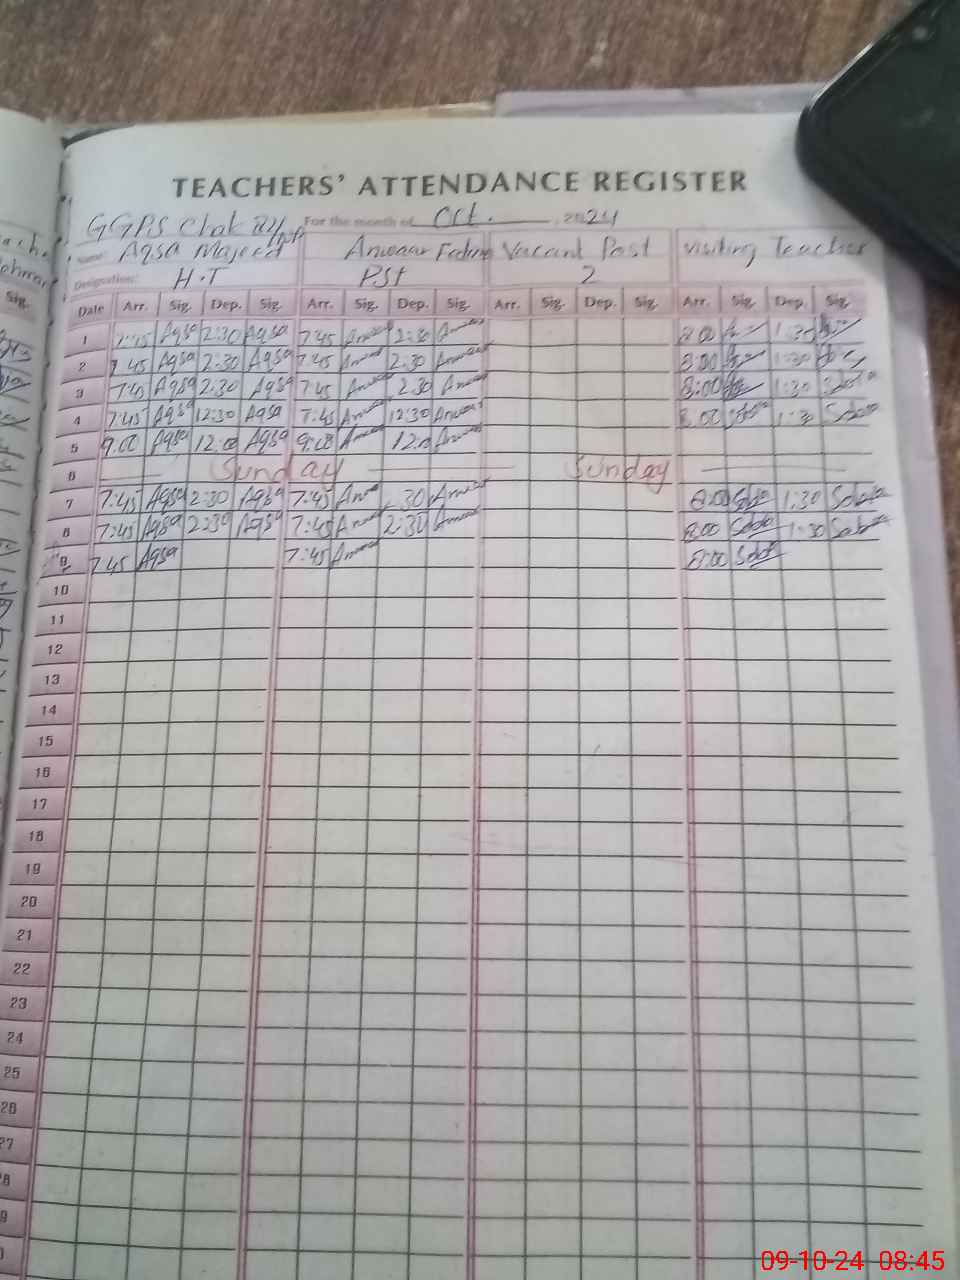 TEACHERS' ATTENDANCE REGISTER
GGPS Chak For the month of Oct. , 2024
Name: Aqsa Majeed Anwaar Vacant Post visiting Teacher
Designation: H.T PST 2
Date Arr. Sig. Dep. Sig. Arr. Sig. Dep. Sig. Arr. Sig. Dep. Sig. Arr. Sig. Dep. Sig.
1 7:45 Aqsa 2:30 Aqsa 7:45 Anwaar 2:30 Anwaar 8:00 1:30
2 7:45 Aqsa 2:30 Aqsa 7:45 Anwaar 2:30 Anwaar 8:00 1:30
3 7:45 Aqsa 2:30 Aqsa 7:45 Anwaar 2:30 Anwaar 8:00 1:30
4 7:45 Aqsa 12:30 Aqsa 7:45 Anwaar 12:30 Anwaar 8:00 1:30
5 9:00 Aqsa 12:00 Aqsa 9:00 Anwaar Anwaar
6 Sunday Sunday
7 7:45 Aqsa 2:30 Aqsa 7:45 :30 Anwaar 8:00 1:30
8 7:45 Aqsa 2:30 Aqsa 7:45 Anwaar 2:30 Anwaar 8:00 1:30
9 7:45 Aqsa 7:45 Anwaar 8:00
10
11
12
13
14
15
16
17
18
19
20
21
22
23
24
25
26
27
09-10-24 08:45